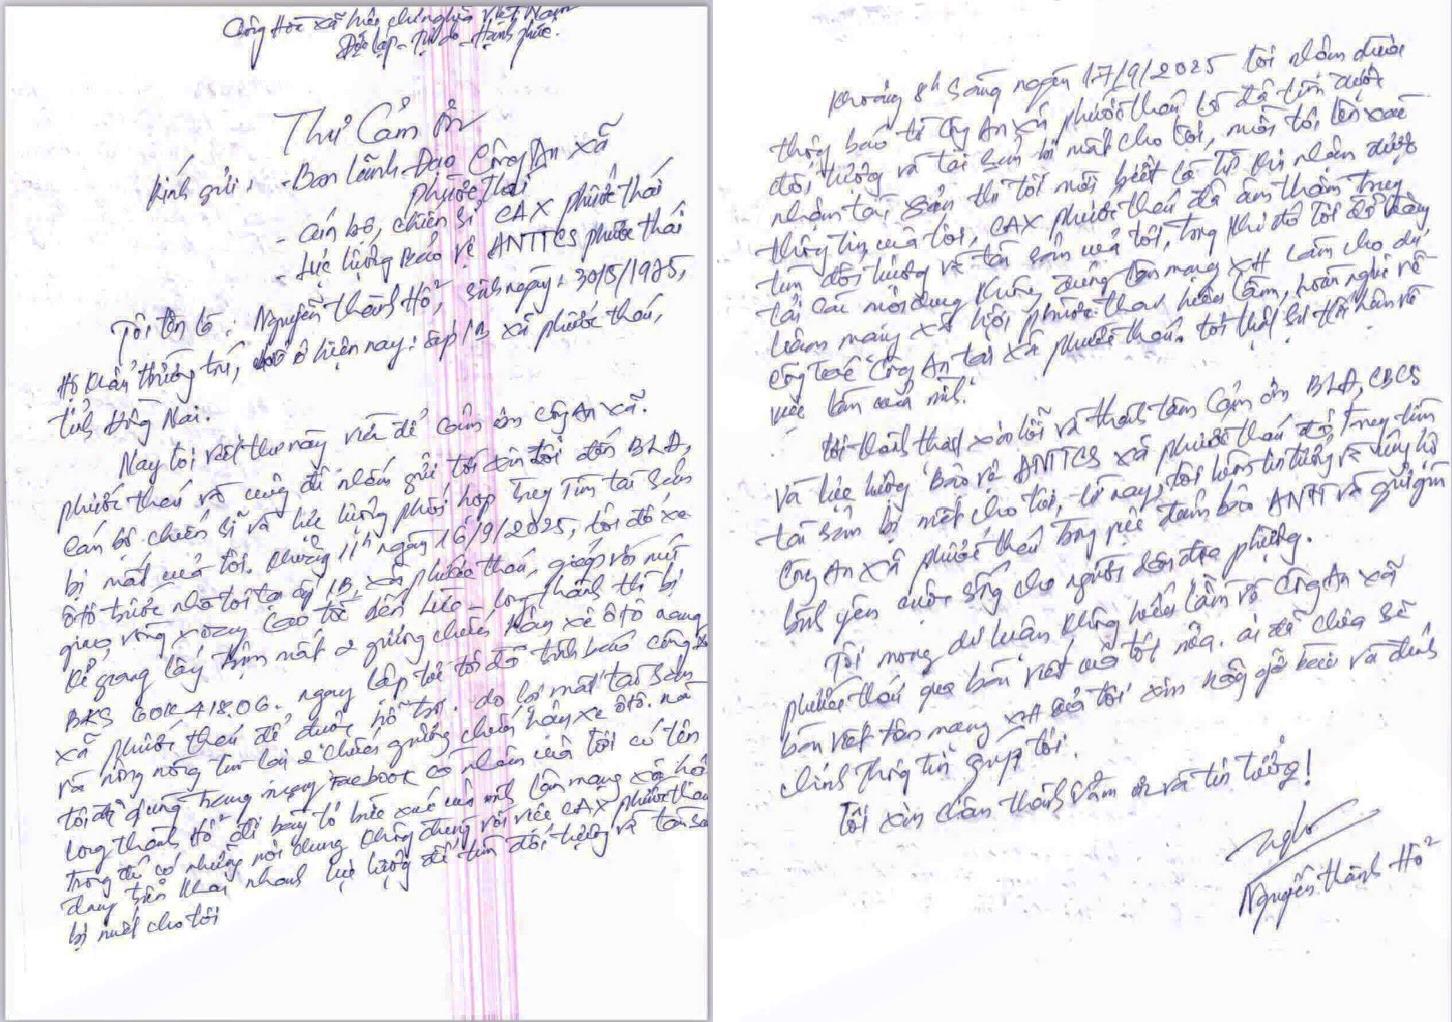 Cộng Hòa xã hội chủ nghĩa Việt Nam
Độc lập - Tự do - Hạnh phúc.
Thư Cảm Ơn
Kính gửi: - Ban Lãnh Đạo Công An xã
Phước Thái
- Cán bộ, chiến sĩ CAX phước thái
- Lực lượng Bảo vệ ANTTCS phước thái
Tôi tên là: Nguyễn Thành Hổ, sinh ngày: 30/5/1975,
Hộ khẩu thường trú, chỗ ở hiện nay: ấp 1B xã phước thái,
tỉnh Đồng Nai.
Nay tôi viết thư này viết để cảm ơn công An xã.
phước thái và cũng để nhắn gửi tới xin lỗi đến BLĐ,
cán bộ chiến sĩ và lực lượng phối hợp truy tìm tài sản
bị mất của tôi. Khoảng 11h ngày 16/9/2025, tôi đỗ xe
ôtô trước nhà tôi tại ấp 1B, xã phước thái, giáp với nút
giao vòng xoay cao tốc Bến Lức - Long Thành thì bị
kẻ gian lấy trộm mất 2 gương chiếu hậu xe ôtô mang
BKS 60K-418.06. ngay lập tức tôi đã trình báo công an
xã phước thái để được hỗ trợ. do bị mất tài sản
và nóng lòng tìm lại 2 chiếc gương chiếu hậu xe ôtô. nên
tôi đã dùng trang mạng Facebook cá nhân của tôi có tên
Long thành Hổ để bày tỏ bức xúc của mình lên mạng xã hội
trong đó có những nội dung không đúng với việc CAX phước thái
đang triển khai nhanh lực lượng để tìm đối tượng và tài sản
bị mất cho tôi
Khoảng 8h sáng ngày 17/9/2025 tôi nhận được
thông báo từ Công An xã phước thái là đã tìm được
đối tượng và tài sản bị mất cho tôi, mời tôi lên xác
nhận tài sản thì tôi mới biết là từ khi nhận được
thông tin của tôi, CAX phước thái đã âm thầm truy
tìm đối tượng và tài sản của tôi, trong khi đó tôi đã đăng
tải các nội dung không đúng lên mạng XH làm cho dư
luận mạng xã hội phước thái hiểu lầm, hoài nghi về
công tác Công An tại xã phước thái. tôi thật sự hối hận về
việc làm của mình.
Tôi thành thật xin lỗi và thành tâm Cảm ơn BLĐ, CBCS
và lực lượng Bảo vệ ANTTCS xã phước thái đã truy tìm
tài sản bị mất cho tôi, từ nay, tôi luôn tin tưởng và ủng hộ
Công An xã phước thái trong việc đảm bảo ANTT và giữ gìn
bình yên cuộc sống cho người dân địa phương.
Tôi mong dư luận không hiểu lầm về Công An xã
phước thái qua bài viết của tôi nữa. ai đã chia sẻ
bài viết trên mạng XH của tôi xin hãy gỡ bài và đính
chính thông tin giúp tôi.
Tôi xin chân thành cảm ơn và tin tưởng!
Nguyễn Thành Hổ